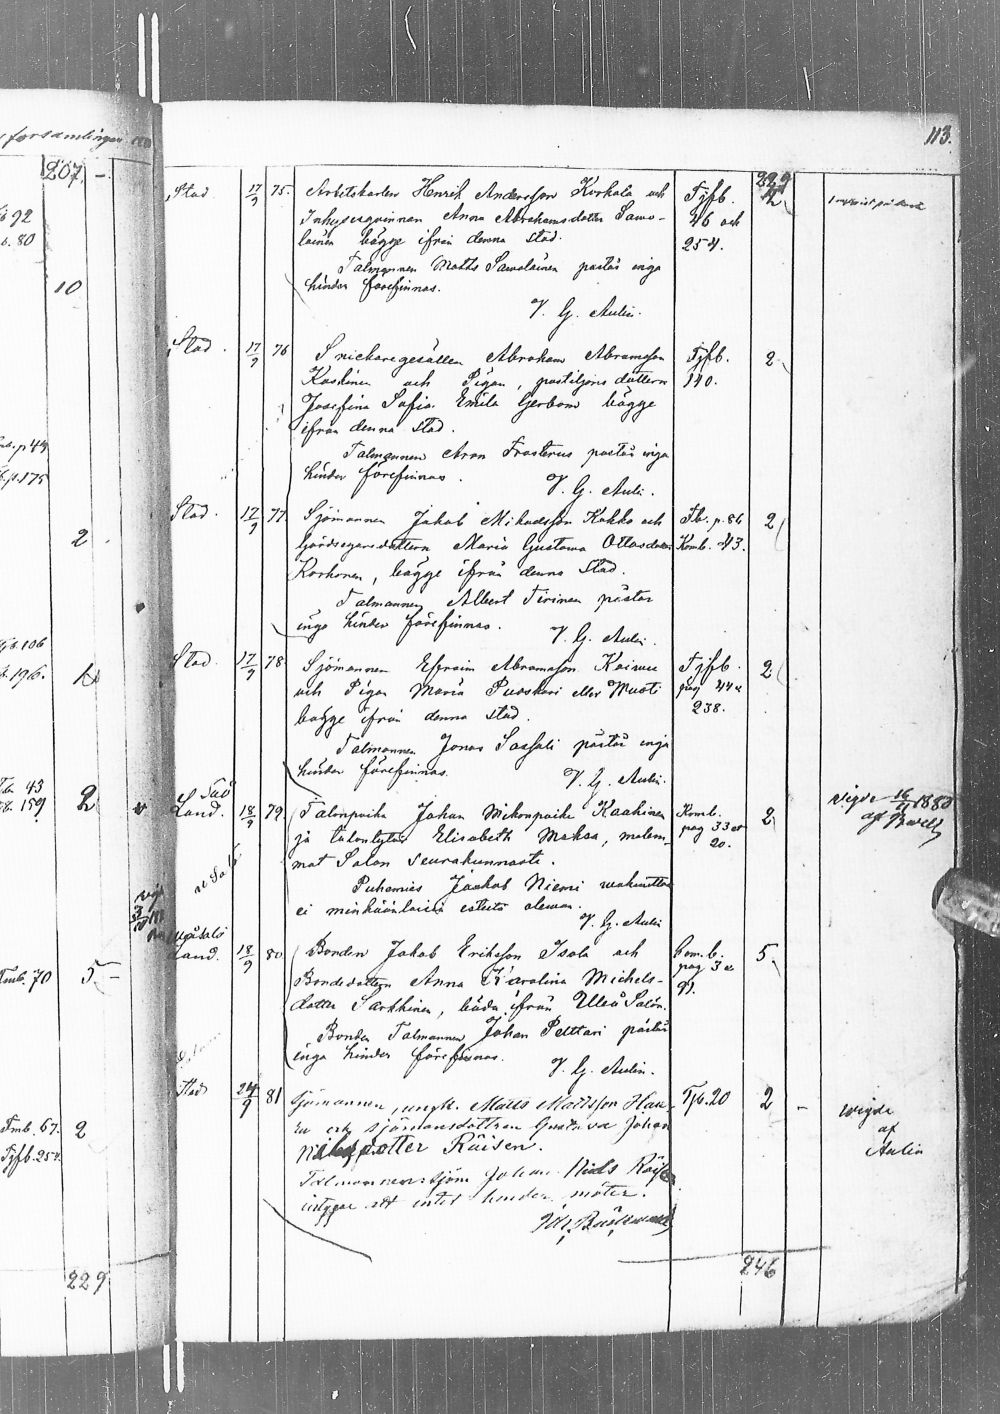 församlingen
207. -
92
s. 80
10
p 49
p. 175
2
106
196.
Tb 43
159
2
Fmb. 70
5 -
Fmb. 67. 2
Fyfb. 254.
229
113.
229
Stad 17/9 75. Arbetskarlen Henrik Andersson Korkala och Fyfb. 2
Inhysesqvinnan Anna Abrahamsdotter Sawo- 46 och
lainen bägge ifrån denna stad. 254.
Talmannen Matts Sawolainen påstår inga
hinder förefinnas.
V. G. Aulin.
Stad. 17/9 76 Snickaregesällen Abraham Abramsson Fyfb. 2
Koskinen och Pigan, postiljons dottern 140.
Josefina Sofia Emilia Gerbom bägge
ifrån denna stad.
Talmannen Aron Frosterus påstår inga
hinder förefinnas.
V. G. Aulin.
Stad. 17/9 77 Sjömannen Jakob Mikaelsson Kokko och Fb. p. 86 2
Gårdsegaredottern Maria Gustawa Ottosdotter Komb. 43.
Korhonen, bägge ifrån denna Stad.
Talmannen Albert Tirinen påstår
inga hinder förefinnas.
V. G. Aulin.
Stad. 17/9 78 Sjömannen Efraim Abramsson Fyfb. 2
och Pigan Maria Puoskari eller Musti pag 44 o
bägge ifrån denna stad. 238.
Talmannen Jonas Sassali påstår inga
hinder förefinnas.
V. G. Aulin.
Salo
Land. 18/9 79. Talonpoika Johan Mikonpoika Kaakinen Komb. 2 vigde 16/11 1880
ja talontytär Elisabeth Maksa, molem- pag 33 o af
mat Salon seurakunnasta. 20.
Puhemies Jaakob Niemi wakuuttaa
ei minkäänlaisia esteitä olewan.
V. G. Aulin
Uleåsalo
Land. 18/9 80 Bonden Jakob Eriksson Isola och Com. b. 5.
Bondedottern Anna Karolina Michels- pag 3 o
dotter Sarkkinen, båda ifrån Uleå Salo. 91.
Bonden Talmannen Johan Pelttari påstår
inga hinder förefinnas.
V. G. Aulin.
Stad 24/9 81 Sjömannen, ungk. Matts Mattsson Fyb. 20 2 - wigde
och sjömansdottren Gustava Johan af
Nilsdotter Räisen. Aulin
Talmannen sjöm Johan Niels
intygar att intet hinder möter.
Joh. Bäckman
246